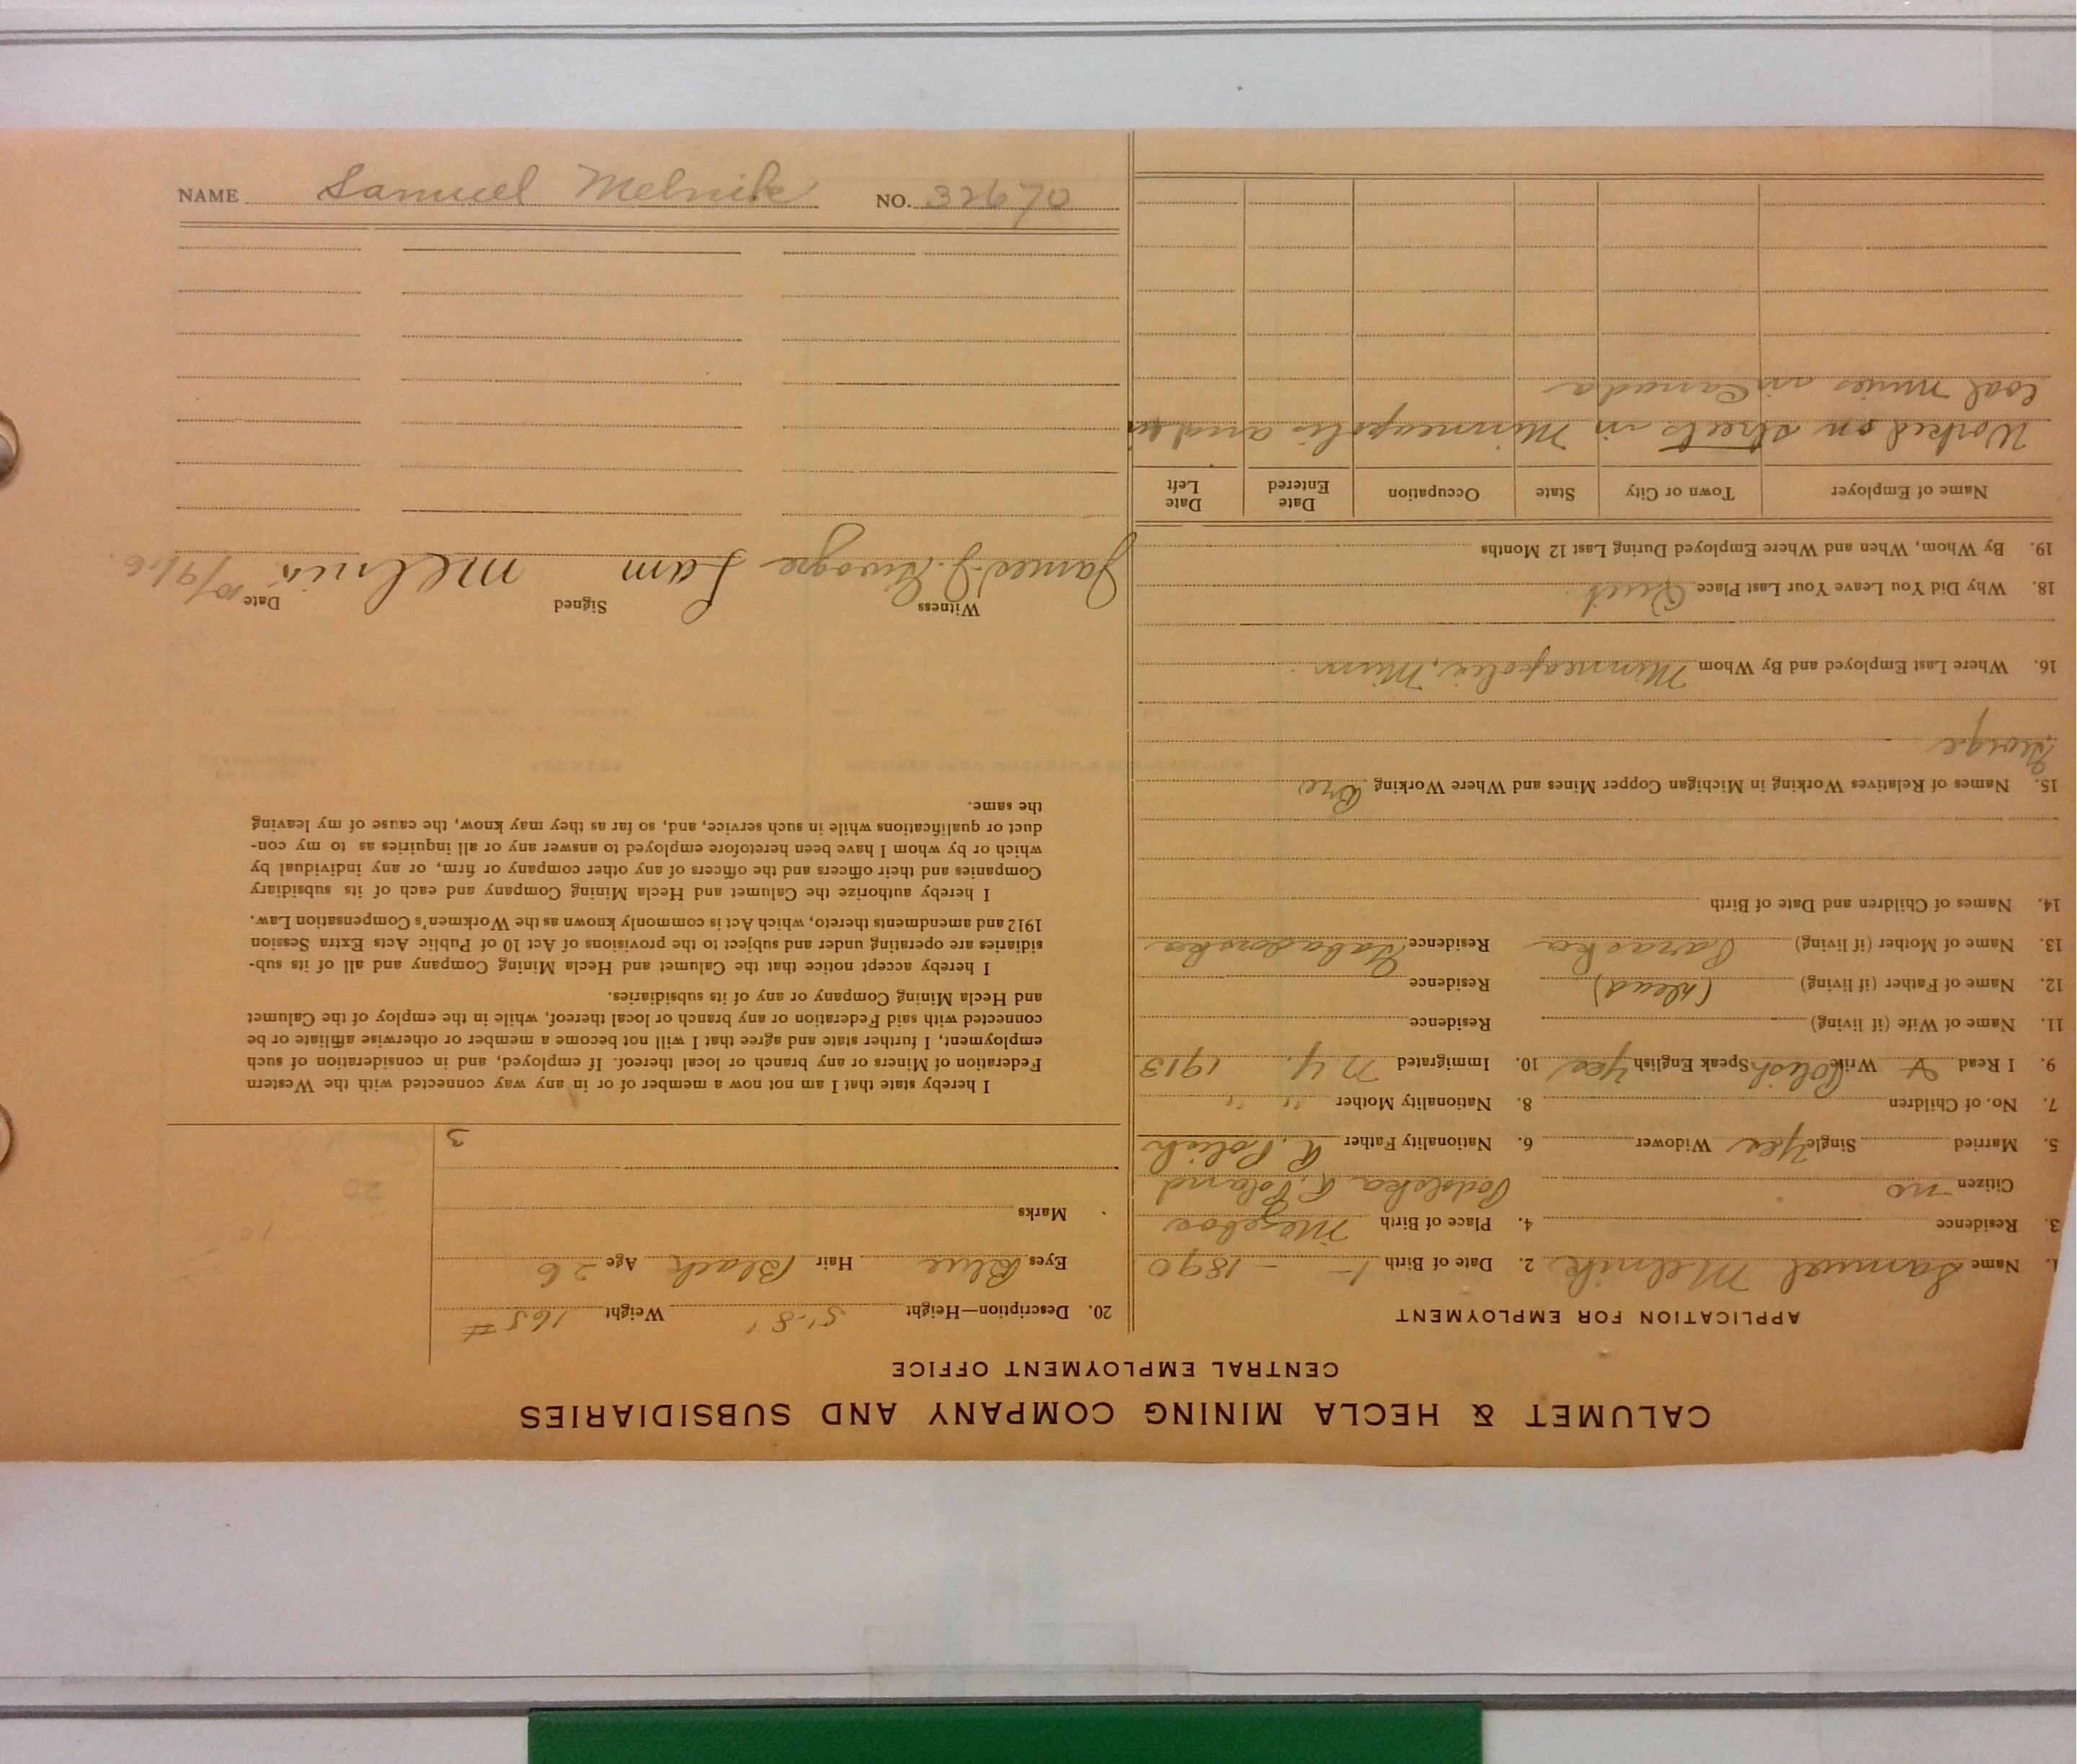 CALUMET & HECLA MINING COMPANY AND SUBSIDIARIES
CENTRAL EMPLOYMENT OFFICE
APPLICATION FOR EMPLOYMENT
1. Name Samuel Melnik 2. Date of Birth 1 - - 1890
3. Residence 4. Place of Birth
Citizen no R. Poland
5. Married Single Yes Widower 6. Nationality Father R. Polish
7. No. of Children 8. Nationality Mother " "
9. I Read & Write Polish Speak English Yes 10. Immigrated N.Y. 1913
11. Name of Wife (if living) Residence
12. Name of Father (if living) (Dead) Residence
13. Name of Mother (if living) Paraska Residence
14. Names of Children and Date of Birth
15. Names of Relatives Working in Michigan Copper Mines and Where Working Bro
George
16. Where Last Employed and By Whom Minneapolis, Minn
18. Why Did You Leave Your Last Place Quit
19. By Whom, When and Where Employed During Last 12 Months
Name of Employer Town or City State Occupation Date Entered Date Left
Worked on streets in Minneapolis and in
Coal mines in Canada
20. Description—Height 5'.8" Weight 165 #
Eyes Blue Hair Black Age 26
Marks
3
I hereby state that I am not now a member of or in any way connected with the Western
Federation of Miners or any branch or local thereof. If employed, and in consideration of such
employment, I further state and agree that I will not become a member or otherwise affiliate or be
connected with said Federation or any branch or local thereof, while in the employ of the Calumet
and Hecla Mining Company or any of its subsidiaries.
I hereby accept notice that the Calumet and Hecla Mining Company and all of its sub-
sidiaries are operating under and subject to the provisions of Act 10 of Public Acts Extra Session
1912 and amendments thereto, which Act is commonly known as the Workmen's Compensation Law.
I hereby authorize the Calumet and Hecla Mining Company and each of its subsidiary
Companies and their officers and the officers of any other company or firm, or any individual by
which or by whom I have been heretofore employed to answer any or all inquiries as to my con-
duct or qualifications while in such service, and, so far as they may know, the cause of my leaving
the same.
Witness Signed Date
James J. Sam Melnik 10/9/16
NAME Samuel Melnik NO. 32670